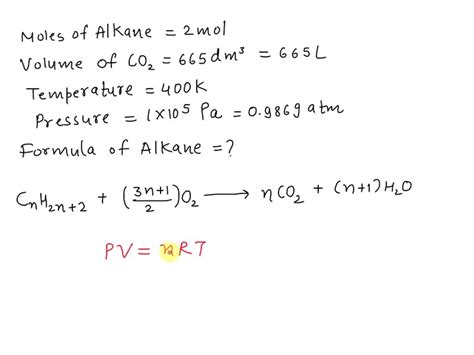 Moles of Alkane = 2mol
Volume of CO₂ = 665dm³ = 665L
Temperature = 400K
Pressure = 1×10⁵ Pa = 0.9869 atm
Formula of Alkane = ?
CₙH₂ₙ₊₂ + (3n+1/2)O₂ ⟶ nCO₂ + (n+1)H₂O
PV = nRT